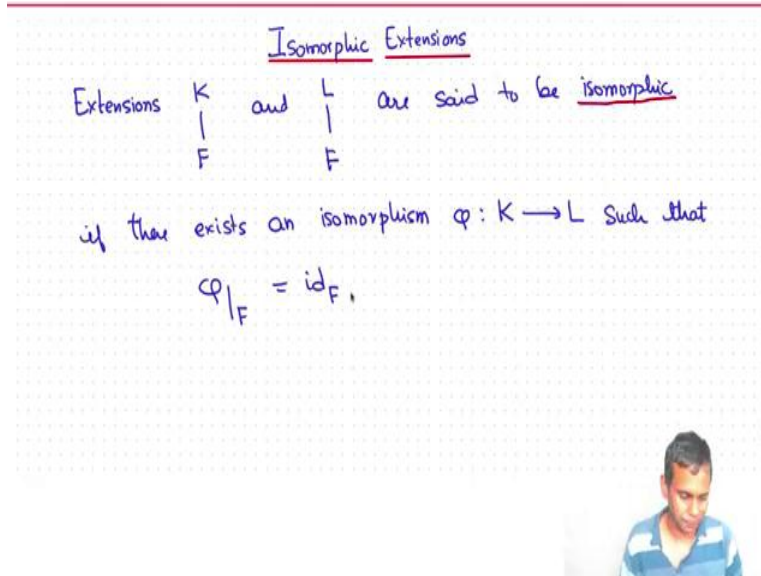 Isomorphic Extensions
Extensions K and L are said to be isomorphic
| |
F F
if there exists an isomorphism φ : K → L such that
φ|F = idF.